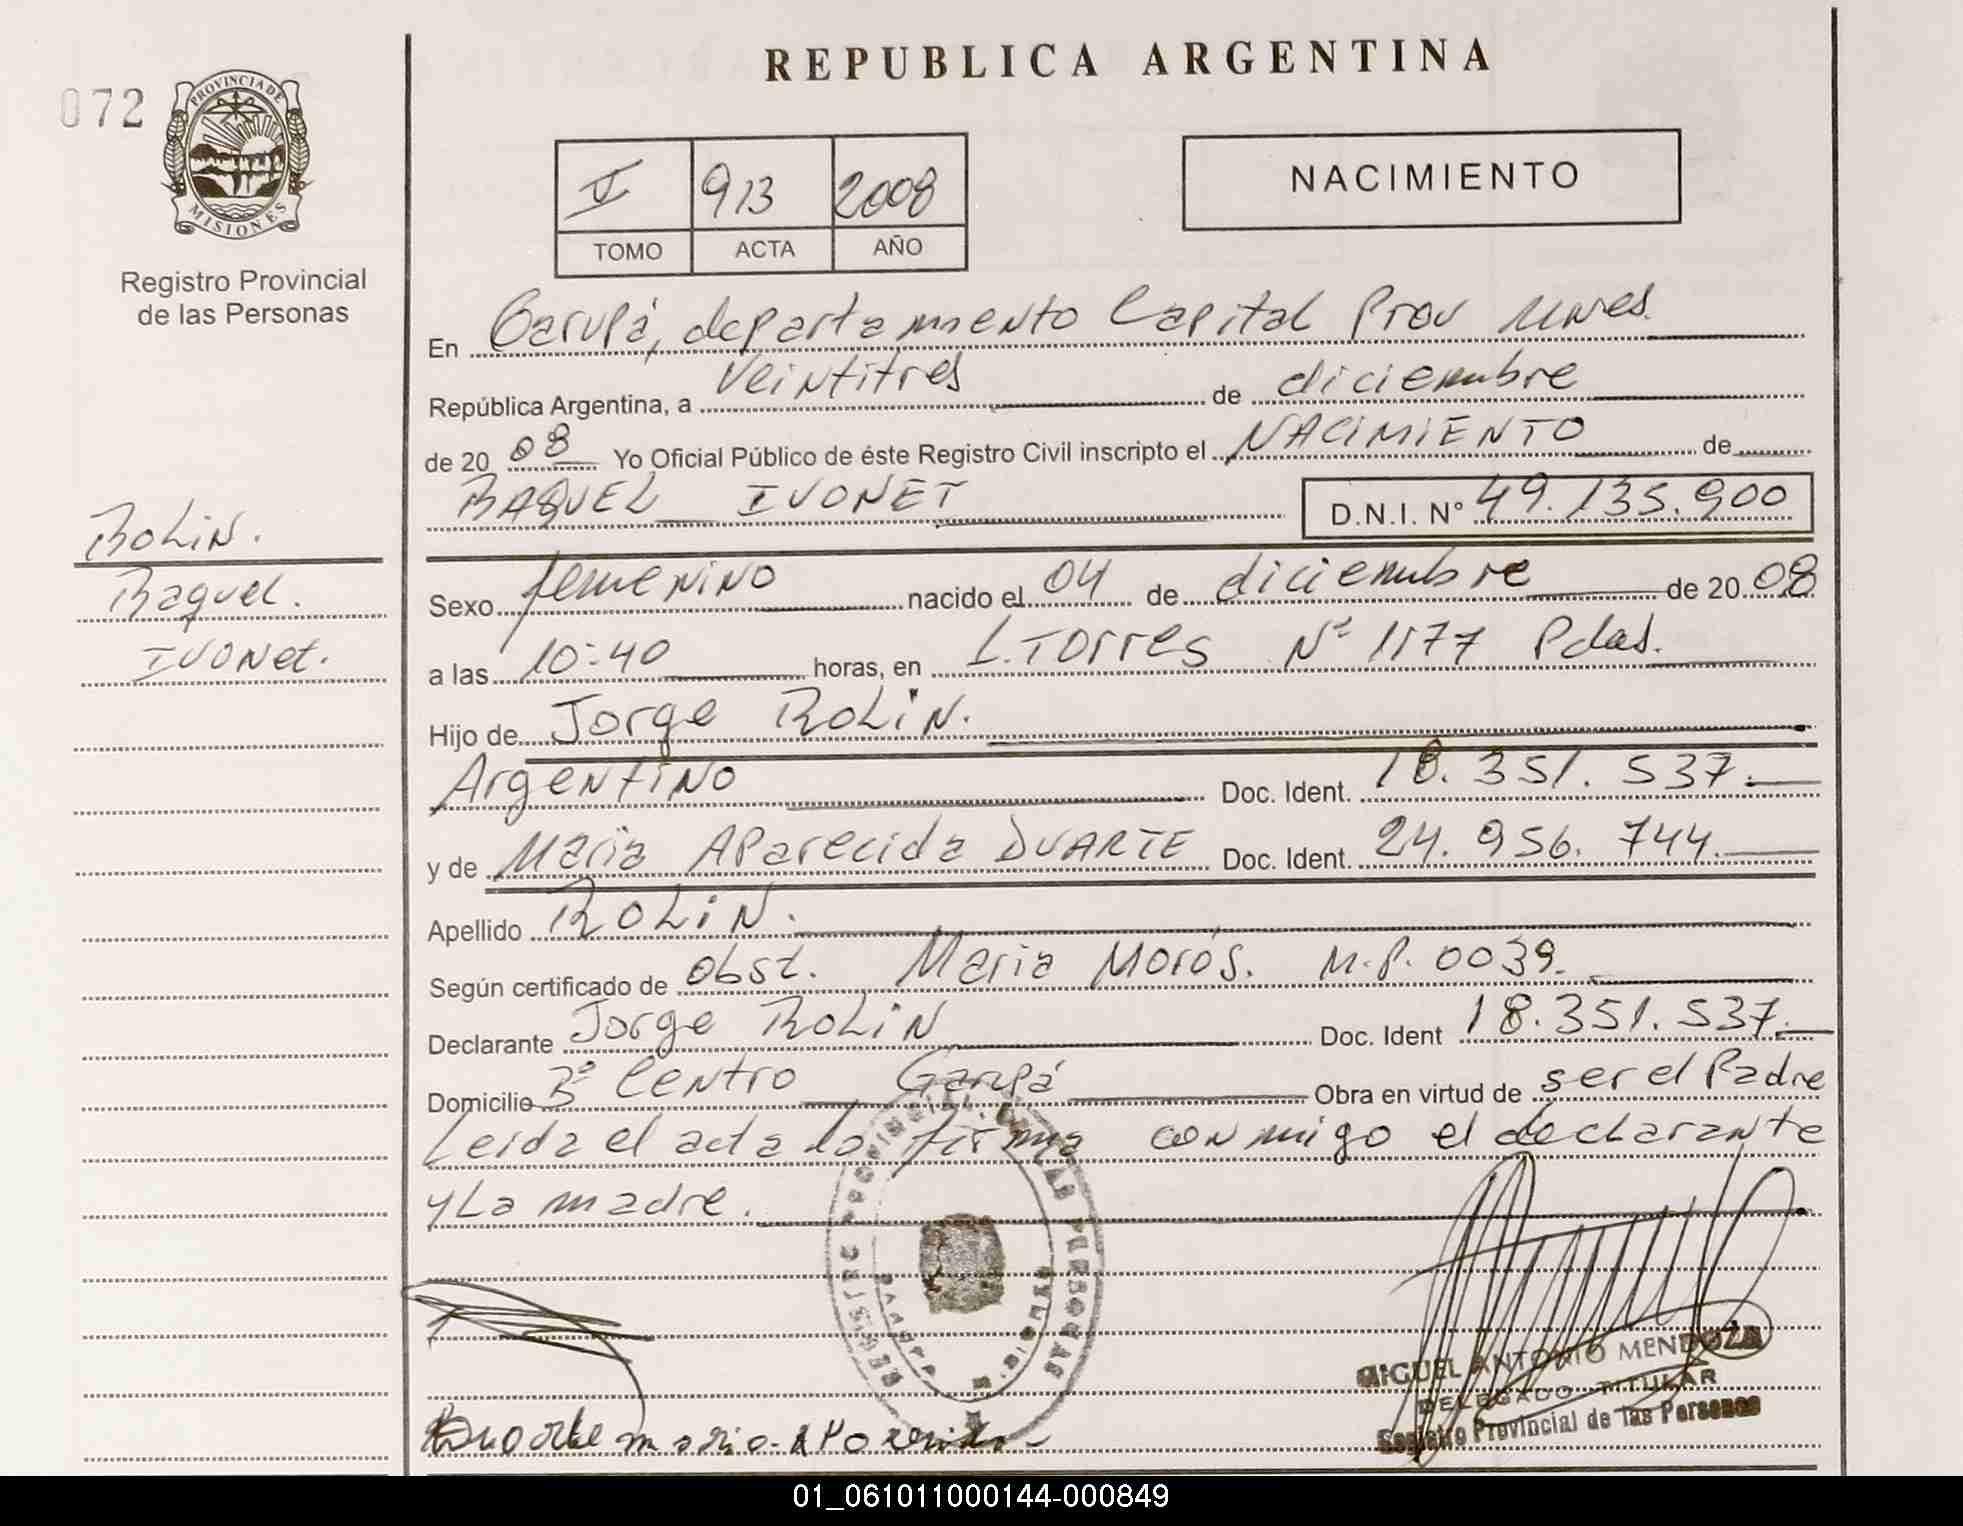 REPUBLICA ARGENTINA
072
PROVINCIA DE
MISIONES
Registro Provincial
de las Personas
V 913 2008
TOMO ACTA AÑO
NACIMIENTO
En Garupá, departamento Capital Prov Mnes.
República Argentina, a Veintitres de diciembre
de 20 08 Yo Oficial Público de éste Registro Civil inscripto el NACIMIENTO de
RAQUEL IVONET D.N.I. N° 49.135.900
Rolin.
Raquel.
Ivonet.
Sexo femenino nacido el 04 de diciembre de 20 08
a las 10:40 horas, en L. Torres N° 1177 Pdas.
Hijo de Jorge Rolin.
Argentino Doc. Ident. 18.351.537.
y de Maria Aparecida DUARTE Doc. Ident. 24.956.744.
Apellido Rolin.
Según certificado de obst. Maria Morós. M.P. 0039.
Declarante Jorge Rolin Doc. Ident 18.351.537.
Domicilio Bº Centro Garupá Obra en virtud de ser el Padre
Leida el acta la firma conmigo el declarante
y La madre.
MIGUEL ANTONIO MENDOZA
DELEGADO TITULAR
Registro Provincial de las Personas
Duarte maria
01_061011000144-000849